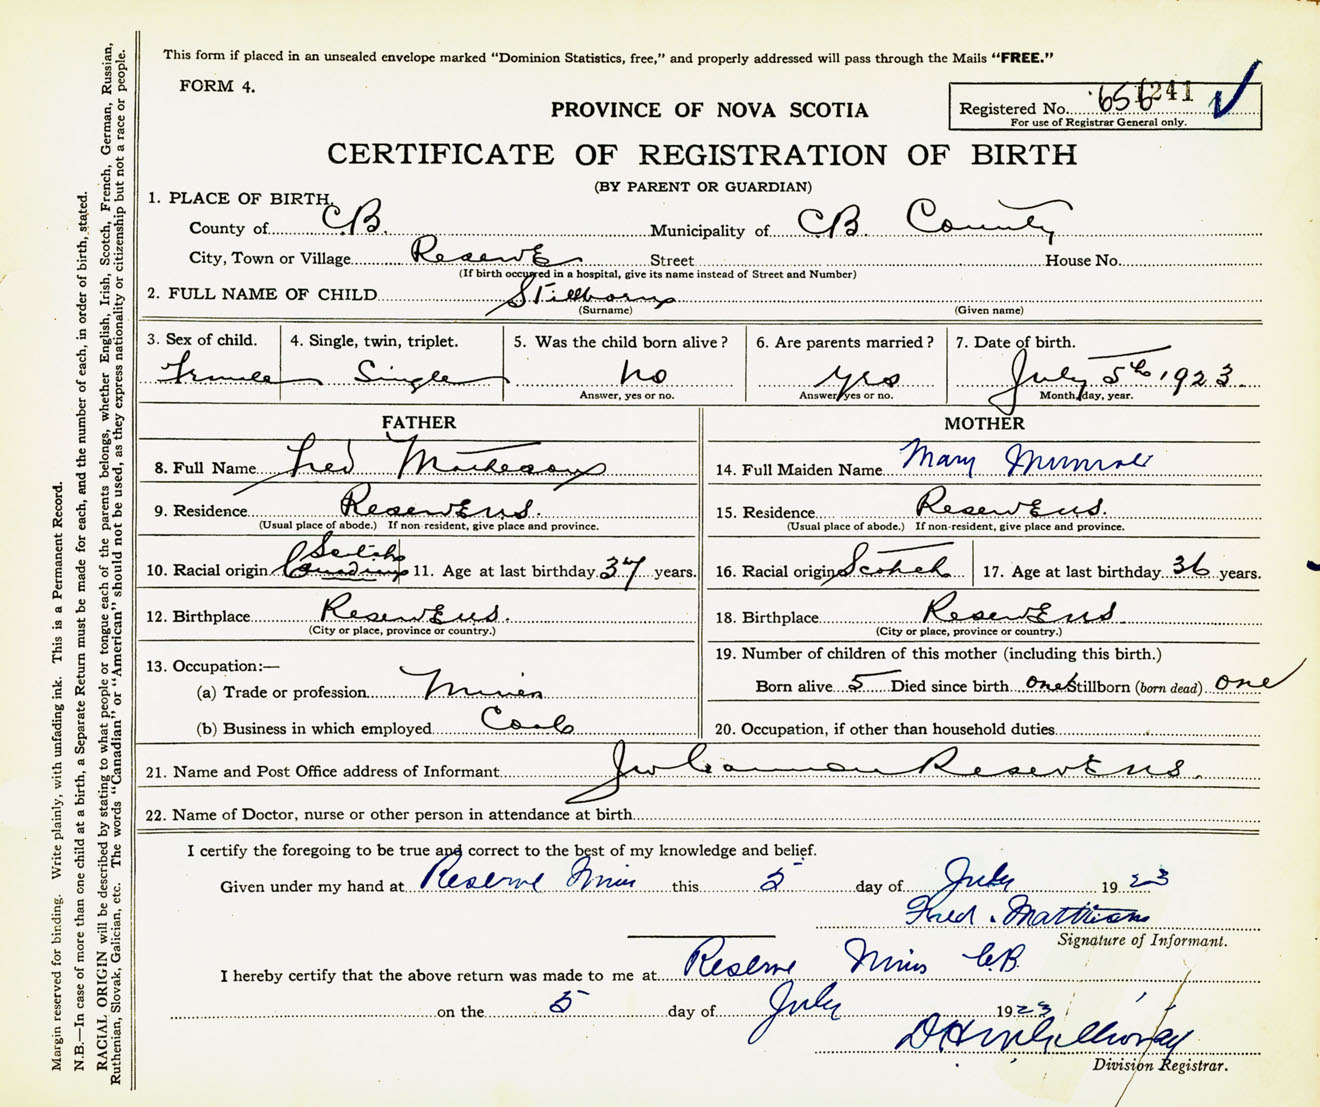 This form if placed in an unsealed envelope marked “Dominion Statistics, free,” and properly addressed will pass through the Mails “FREE.”
FORM 4.
Registered No. 656 1241
For use of Registrar General only.
PROVINCE OF NOVA SCOTIA
CERTIFICATE OF REGISTRATION OF BIRTH
(BY PARENT OR GUARDIAN)
1. PLACE OF BIRTH,
County of CB. Municipality of CB County
City, Town or Village Reserve Street House No.
(If birth occurred in a hospital, give its name instead of Street and Number)
2. FULL NAME OF CHILD Stillborn
(Surname) (Given name)
3. Sex of child. 4. Single, twin, triplet. 5. Was the child born alive? 6. Are parents married? 7. Date of birth.
Female Single no yes July 5th 1923
Answer, yes or no. Answer, yes or no. Month, day, year.
FATHER MOTHER
8. Full Name Fred Matheson 14. Full Maiden Name Mary
9. Residence Reserve NS. 15. Residence Reserve NS.
(Usual place of abode.) If non-resident, give place and province. (Usual place of abode.) If non-resident, give place and province.
Scotch
10. Racial origin Canadian 11. Age at last birthday 37 years. 16. Racial origin Scotch 17. Age at last birthday 36 years.
12. Birthplace Reserve NS. 18. Birthplace Reserve NS
(City or place, province or country.) (City or place, province or country.)
13. Occupation:— 19. Number of children of this mother (including this birth.)
(a) Trade or profession Miner Born alive 5 Died since birth one Stillborn (born dead) one
(b) Business in which employed Coal 20. Occupation, if other than household duties
21. Name and Post Office address of Informant Reserve NS.
22. Name of Doctor, nurse or other person in attendance at birth
I certify the foregoing to be true and correct to the best of my knowledge and belief.
Given under my hand at Reserve Mines this 5 day of July 1923
Fred. Matheson
Signature of Informant.
I hereby certify that the above return was made to me at Reserve Mines C.B.
on the 5 day of July 1923
Division Registrar.
Margin reserved for binding. Write plainly, with unfading ink. This is a Permanent Record.
N.B.—In case of more than one child at a birth, a Separate Return must be made for each, and the number of each, in order of birth, stated.
RACIAL ORIGIN will be described by stating to what people or tongue each of the parents belongs, whether English, Irish, Scotch, French, German, Russian,
Ruthenian, Slovak, Galician, etc. The words “Canadian” or “American” should not be used, as they express nationality or citizenship but not a race or people.